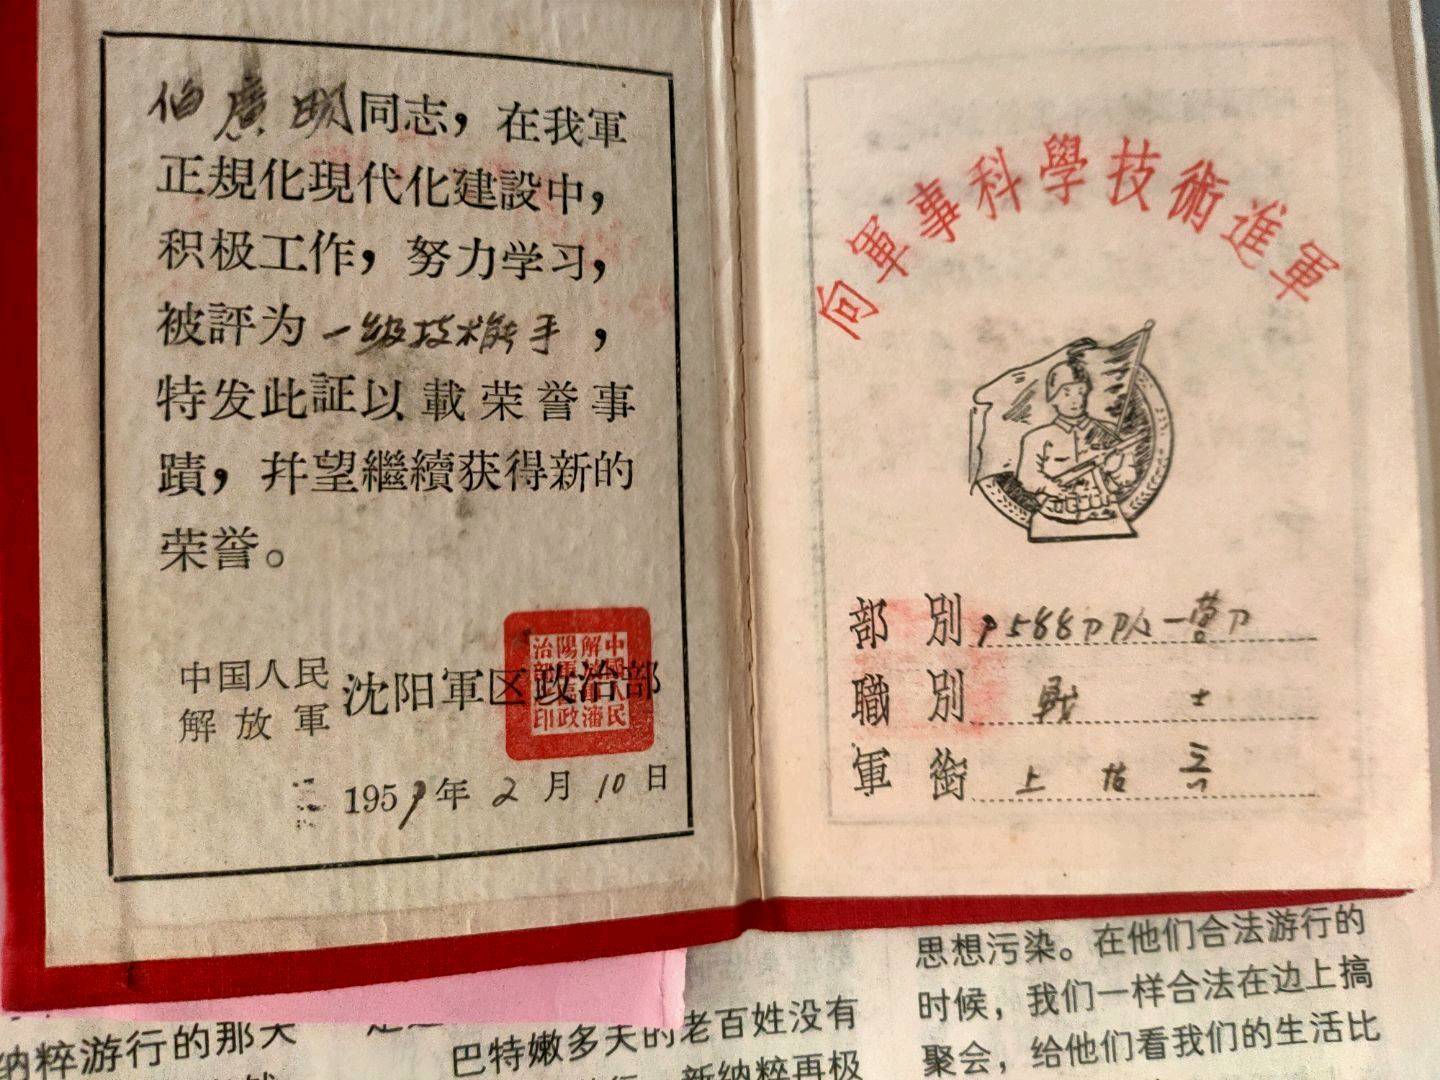 伯廣明同志，在我軍
正規化現代化建設中，
积极工作，努力学习，
被評为一级技术能手，
特发此証以載荣誉事
蹟，幷望繼續获得新的
荣誉。
中国人民
解放軍
沈阳軍区政治部
1959年2月10日
向軍事科學技術進軍
部別
職別 戰士
軍銜 上
纳粹游行的那天
巴特嫩多天的老百姓没有
新纳粹再极
思想污染。在他们合法游行的
时候，我们一样合法在边上搞
聚会，给他们看我们的生活比